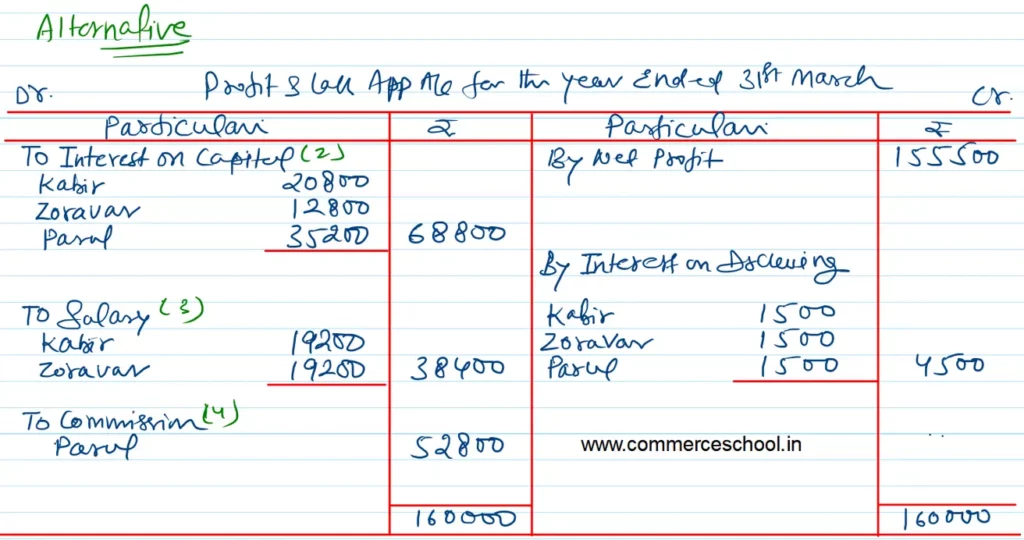 Alternative
Profit & Loss App A/c for the year Ended 31st March
Dr. Cr.
Particulars ₹ Particulars ₹
To Interest on Capital (2) By Net Profit 155500
Kabir 20800
Zoravar 12800
Parul 35200 68800
By Interest on Drawing
To Salary (3) Kabir 1500
Kabir 19200 Zoravar 1500
Zoravar 19200 38400 Parul 1500 4500
To Commission (4)
Parul 52800 www.commerceschool.in
160000 160000